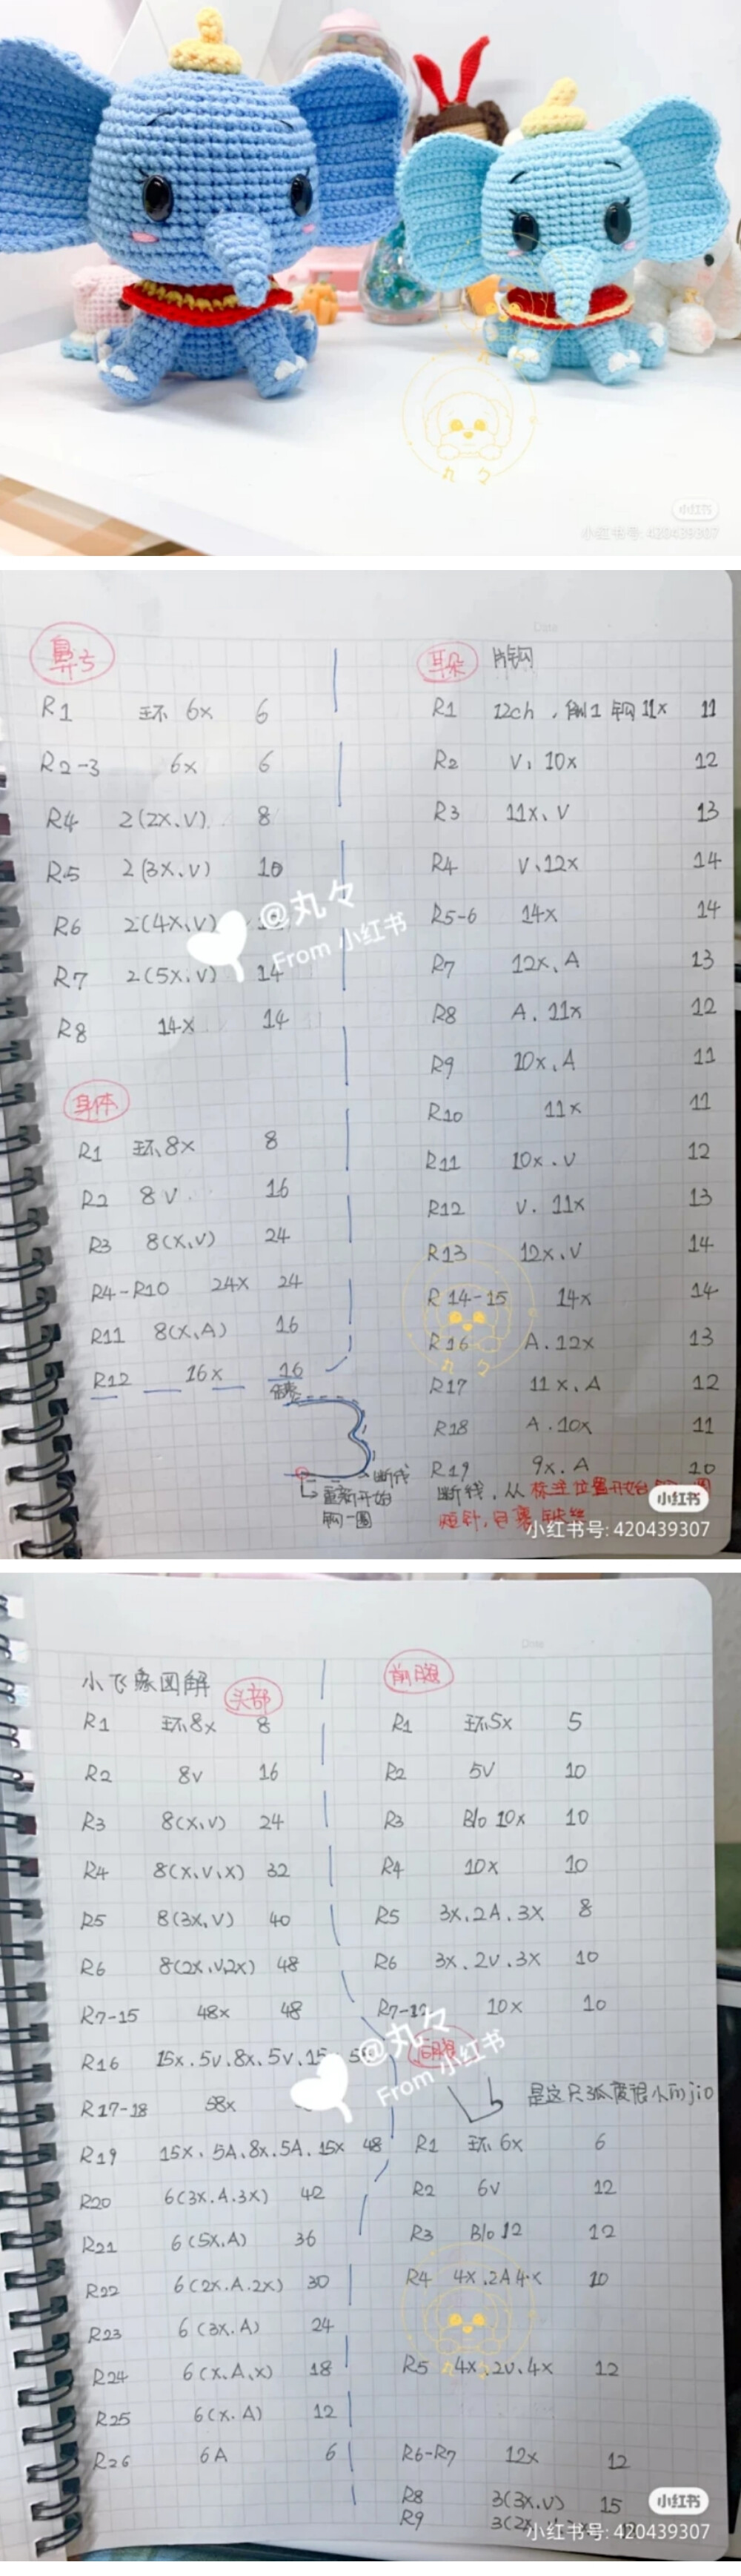 小红书
小红书号: 420439307
丸々
Date
鼻子
R1 环 6x 6
R2-3 6x 6
R4 2(2x、v) 8
R5 2(3x、v) 10
R6 2(4x、v)
R7 2(5x、v) 14
R8 14x 14
身体
R1 环、8x 8
R2 8v 16
R3 8(x、v) 24
R4-R10 24x 24
R11 8(x、A) 16
R12 16x 16
断线
重新开始
钩一圈
耳朵 片钩
R1 12ch，倒1 钩11x 11
R2 v、10x 12
R3 11x、v 13
R4 v、12x 14
R5-6 14x 14
R7 12x、A 13
R8 A. 11x 12
R9 10x、A 11
R10 11x 11
R11 10x.v 12
R12 v. 11x 13
R13 12x、v 14
R14-15 14x 14
R16 A.12x 13
R17 11x、A 12
R18 A.10x 11
R19 9x.A 10
断线，从标注位置开始钩一圈
短针，包裹
@丸々
From 小红书
丸々
小红书
小红书号: 420439307
Date
小飞象图解 头部
R1 环8x 8
R2 8v 16
R3 8(x、v) 24
R4 8(x、v、x) 32
R5 8(3x、v) 40
R6 8(2x、v、2x) 48
R7-15 48x 48
R16 15x.5v.8x.5v.15
R17-18 58x
R19 15x、5A、8x.5A.15x 48
R20 6(3x.A.3x) 42
R21 6(5x.A) 36
R22 6(2x.A.2x) 30
R23 6(3x.A) 24
R24 6(x.A、x) 18
R25 6(x.A) 12
R26 6A 6
前腿
R1 环5x 5
R2 5v 10
R3 Blo 10x 10
R4 10x 10
R5 3x.2A.3x 8
R6 3x.2v.3x 10
R7-12 10x 10
后腿
是这只弧度很小的jio
R1 环6x 6
R2 6v 12
R3 Blo 12 12
R4 4x.2A 4x 10
R5 4x.2v.4x 12
R6-R7 12x 12
R8 3(3x.v) 15
R9 3(2x
@丸々
From 小红书
丸々
小红书
小红书号: 420439307